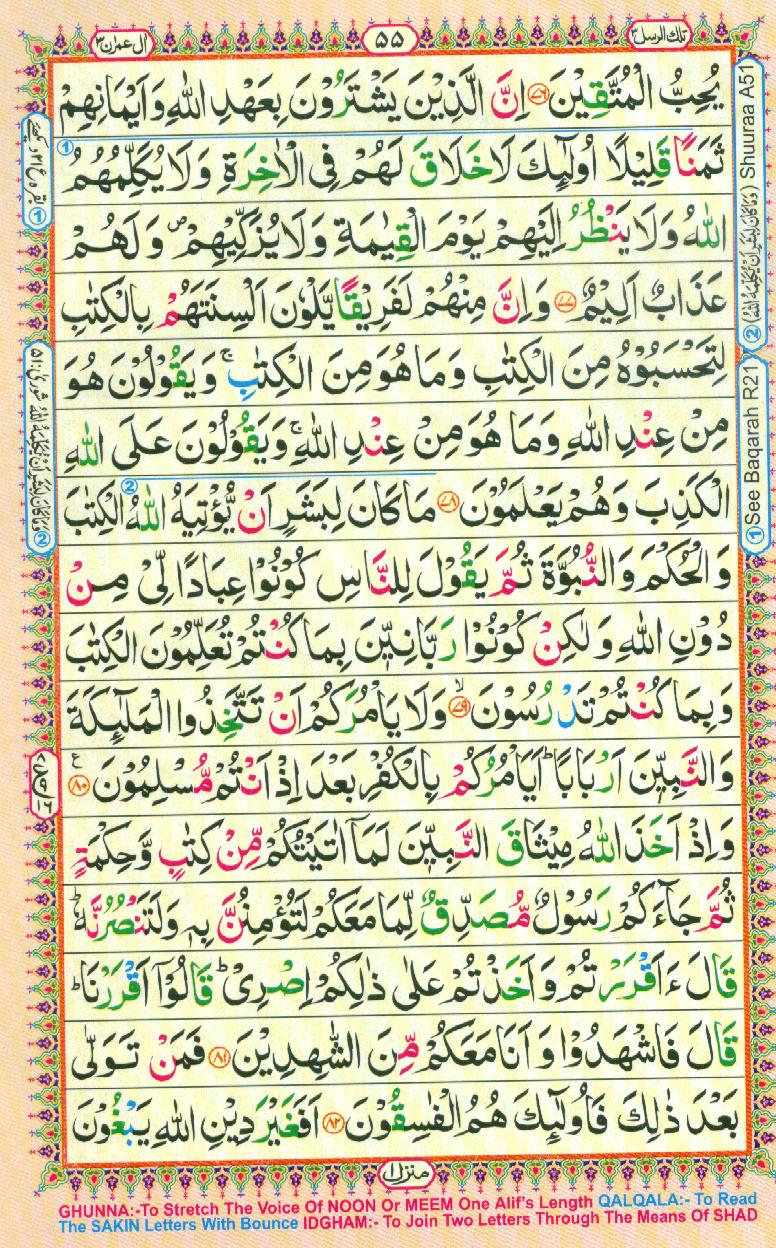 تلك الرسل ٣
۵۵
ال عمرٰن ٣
يُحِبُّ الْمُتَّقِيْنَ ﴿٧٦﴾ اِنَّ الَّذِيْنَ يَشْتَرُوْنَ بِعَهْدِ اللّٰهِ وَاَيْمَانِهِمْ
ثَمَنًا قَلِيْلًا اُولٰٓئِكَ لَا خَلَاقَ لَهُمْ فِى الْاٰخِرَةِ وَلَا يُكَلِّمُهُمُ ①
اللّٰهُ وَلَا يَنْظُرُ اِلَيْهِمْ يَوْمَ الْقِيٰمَةِ وَلَا يُزَكِّيْهِمْ ۖ وَلَهُمْ
عَذَابٌ اَلِيْمٌ ﴿٧٧﴾ وَاِنَّ مِنْهُمْ لَفَرِيْقًا يَّلْوٗنَ اَلْسِنَتَهُمْ بِالْكِتٰبِ
لِتَحْسَبُوْهُ مِنَ الْكِتٰبِ وَمَا هُوَ مِنَ الْكِتٰبِ ۚ وَيَقُوْلُوْنَ هُوَ
مِنْ عِنْدِ اللّٰهِ وَمَا هُوَ مِنْ عِنْدِ اللّٰهِ ۚ وَيَقُوْلُوْنَ عَلَى اللّٰهِ
الْكَذِبَ وَهُمْ يَعْلَمُوْنَ ﴿٧٨﴾ مَا كَانَ لِبَشَرٍ اَنْ يُّؤْتِيَهُ ② اللّٰهُ الْكِتٰبَ
وَالْحُكْمَ وَالنُّبُوَّةَ ثُمَّ يَقُوْلَ لِلنَّاسِ كُوْنُوْا عِبَادًا لِّىْ مِنْ
دُوْنِ اللّٰهِ وَلٰكِنْ كُوْنُوْا رَبَّانِيّٖنَ بِمَا كُنْتُمْ تُعَلِّمُوْنَ الْكِتٰبَ
وَبِمَا كُنْتُمْ تَدْرُسُوْنَ ۙ﴿٧٩﴾ وَلَا يَاْمُرَكُمْ اَنْ تَتَّخِذُوا الْمَلٰٓئِكَةَ
وَالنَّبِيّٖنَ اَرْبَابًا ؕ اَيَاْمُرُكُمْ بِالْكُفْرِ بَعْدَ اِذْ اَنْتُمْ مُّسْلِمُوْنَ ﴿٨٠﴾ ع
وَاِذْ اَخَذَ اللّٰهُ مِيْثَاقَ النَّبِيّٖنَ لَمَاۤ اٰتَيْتُكُمْ مِّنْ كِتٰبٍ وَّحِكْمَةٍ
ثُمَّ جَآءَكُمْ رَسُوْلٌ مُّصَدِّقٌ لِّمَا مَعَكُمْ لَتُؤْمِنُنَّ بِهٖ وَلَتَنْصُرُنَّهٗ ؕ
قَالَ ءَاَقْرَرْتُمْ وَاَخَذْتُمْ عَلٰى ذٰلِكُمْ اِصْرِىْ ؕ قَالُوْۤا اَقْرَرْنَا ؕ
قَالَ فَاشْهَدُوْا وَاَنَا مَعَكُمْ مِّنَ الشّٰهِدِيْنَ ﴿٨١﴾ فَمَنْ تَوَلّٰى
بَعْدَ ذٰلِكَ فَاُولٰٓئِكَ هُمُ الْفٰسِقُوْنَ ﴿٨٢﴾ اَفَغَيْرَ دِيْنِ اللّٰهِ يَبْغُوْنَ
منزل ١
② (وَمَا كَانَ لِبَشَرٍ اَنْ يُّكَلِّمَهُ اللّٰهُ) Shuuraa A51
① See Baqarah R21
GHUNNA:-To Stretch The Voice Of NOON Or MEEM One Alif's Length QALQALA:- To Read
The SAKIN Letters With Bounce IDGHAM:- To Join Two Letters Through The Means Of SHAD